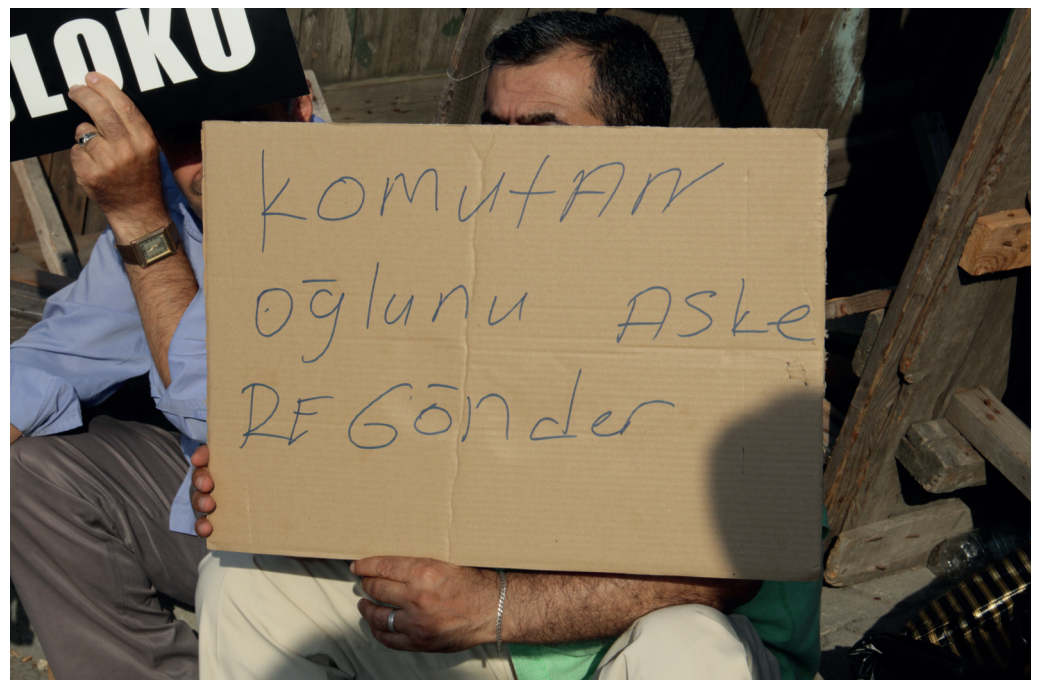 LOKU
komutAn
oğlunu ASke
RE Gönder